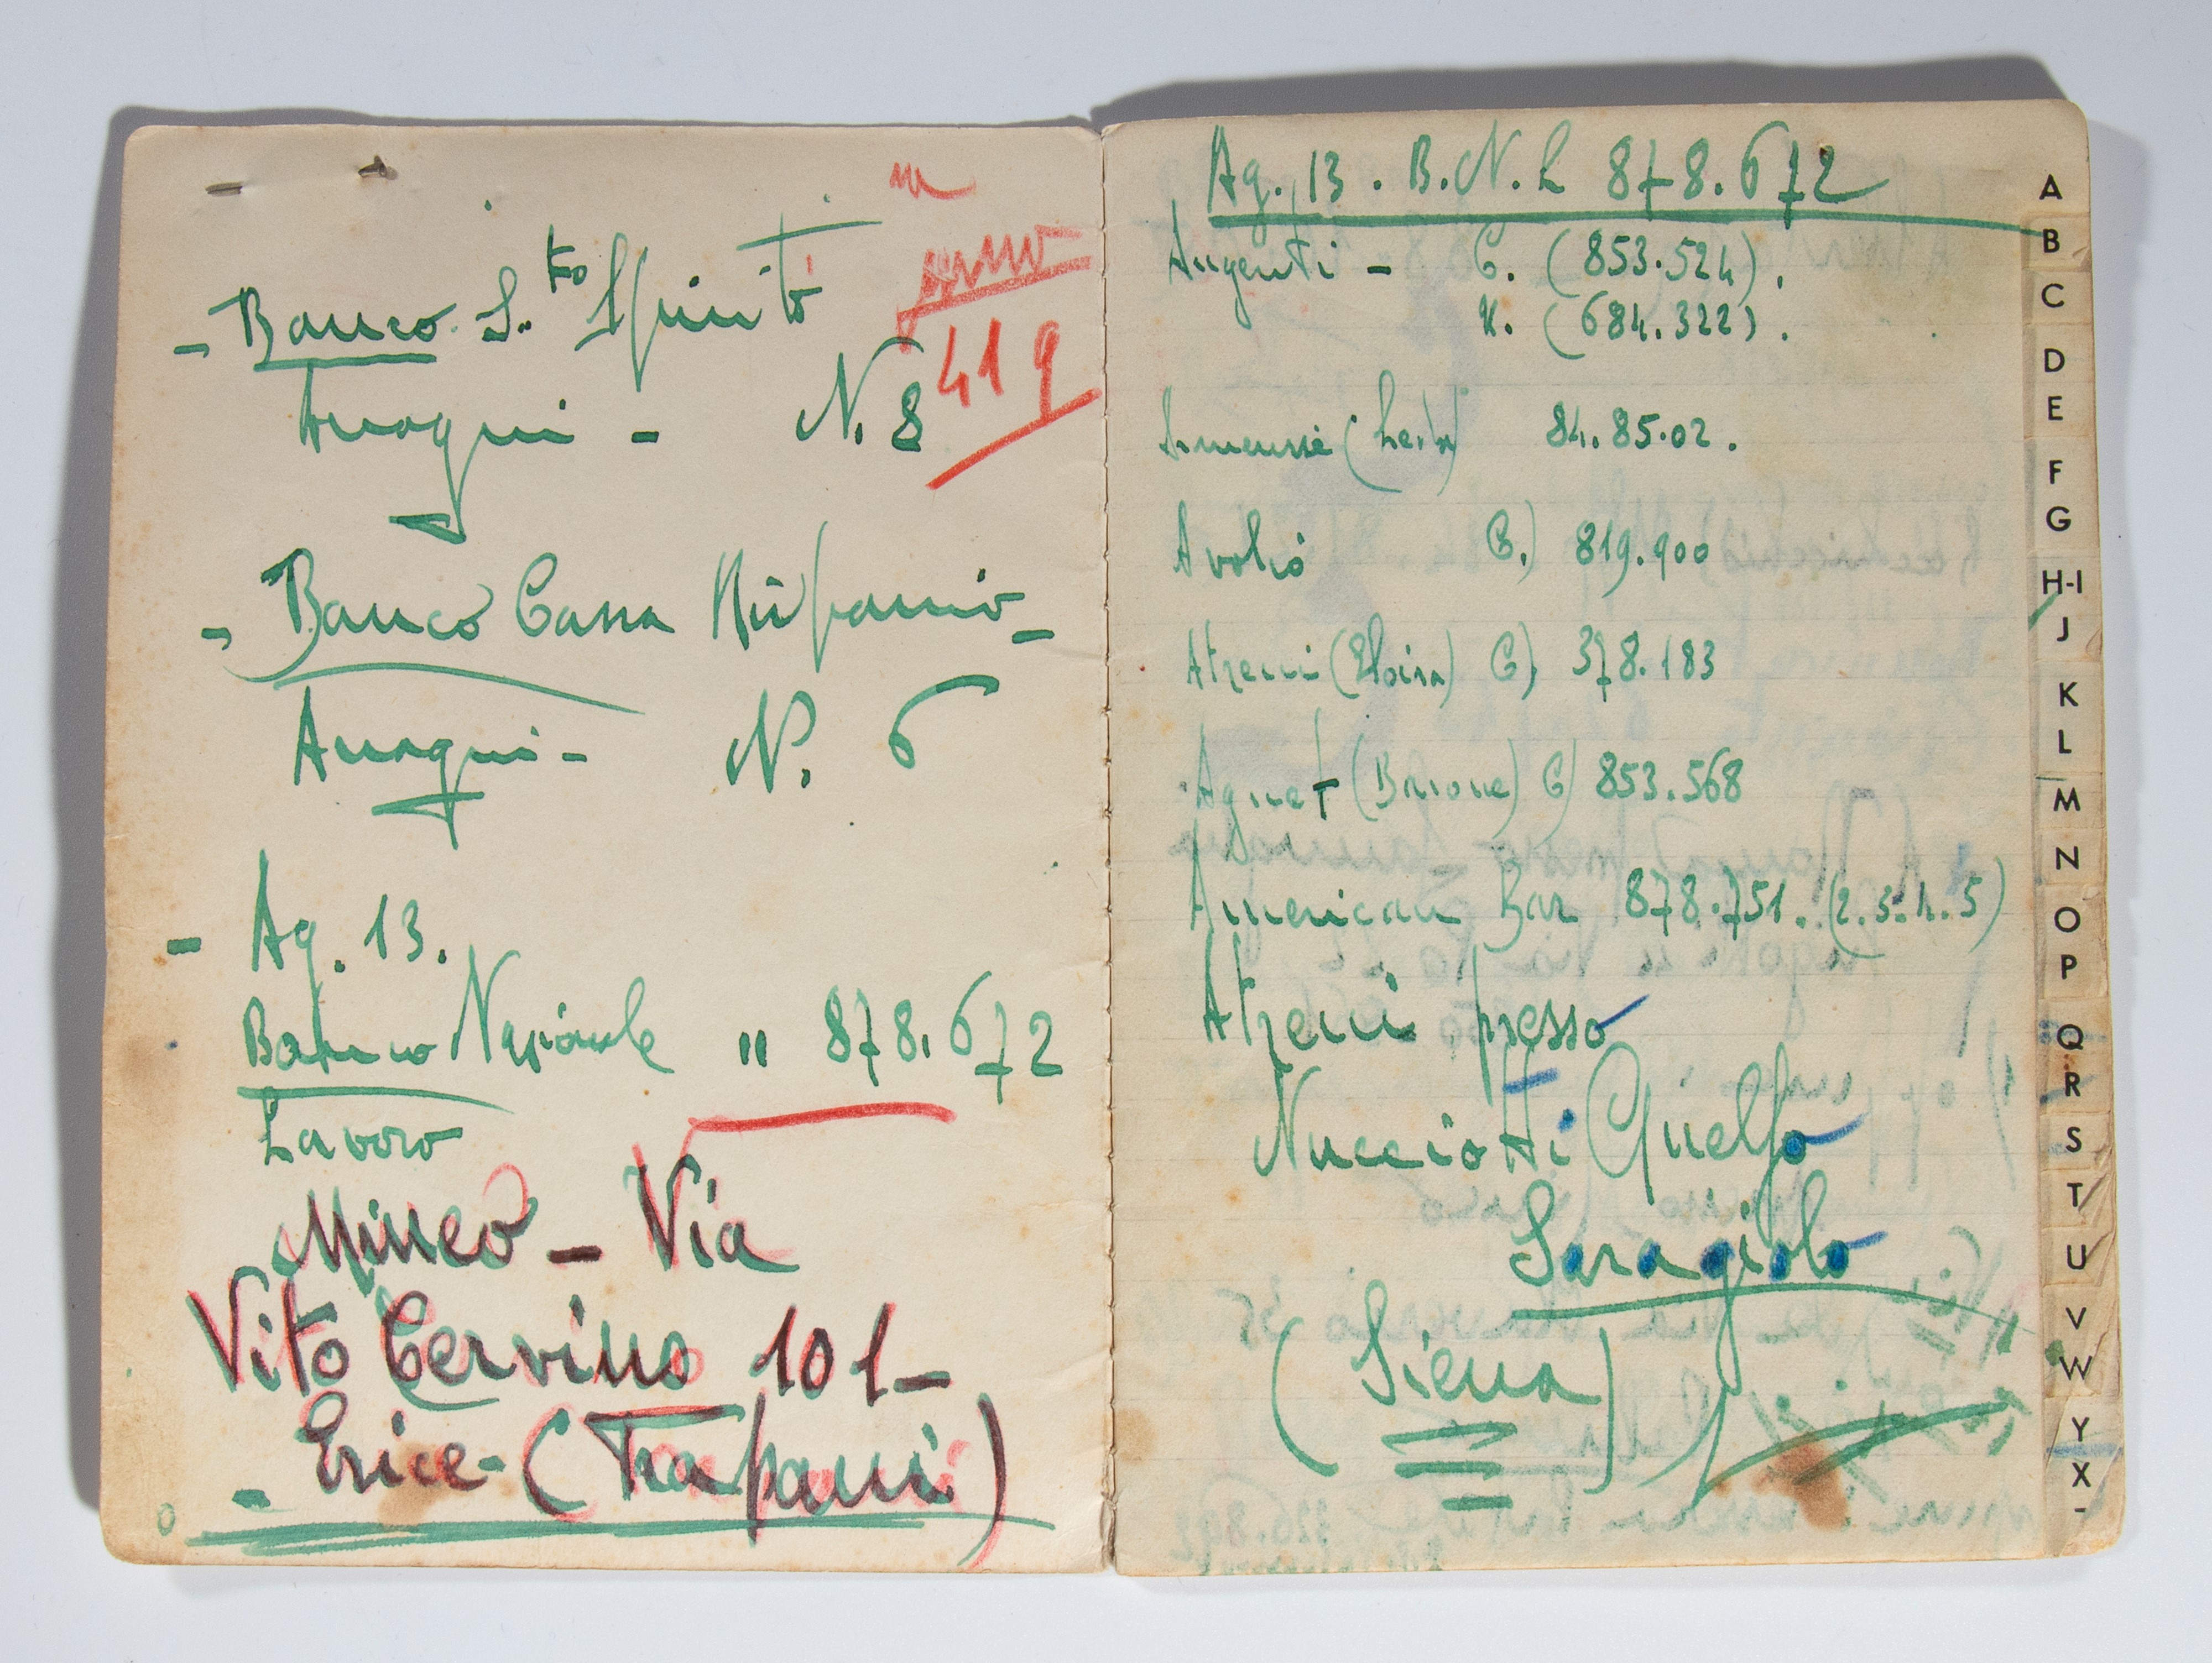 - Banco S.to Spirito
Anagni - N. 8
419
- Banco Cassa Risparmio -
Anagni - N. 6
- Ag. 13.
Banco Nazionale " 878.672
Lavoro
Mineo - Via
Vito Cervino 101 -
- Erice - (Trapani)
Ag. 13. B.N.L 878.672
Augenti - C. (853.524).
(684.322).
84.85.02.
Avolio C.) 819.900
Atzeni (Eloisa) C) 378.183
Agnet (Brione) C) 853.568
American Bar 878.751. (2.3.4.5)
Atzeni presso
Nucciotti Guelfo
Saragiolo
(Siena)
A
B
C
D
E
F
G
H-I
J
K
L
M
N
O
P
Q
R
S
T
U
V
W
Y
X-